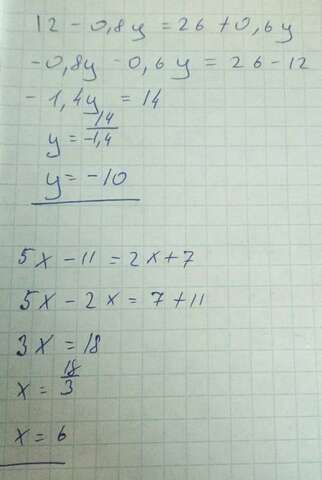 12 - 0,8y = 26 + 0,6y
-0,8y - 0,6y = 26 - 12
-1,4y = 14
y = 14/-1,4
y = -10
5x - 11 = 2x + 7
5x - 2x = 7 + 11
3x = 18
x = 18/3
x = 6